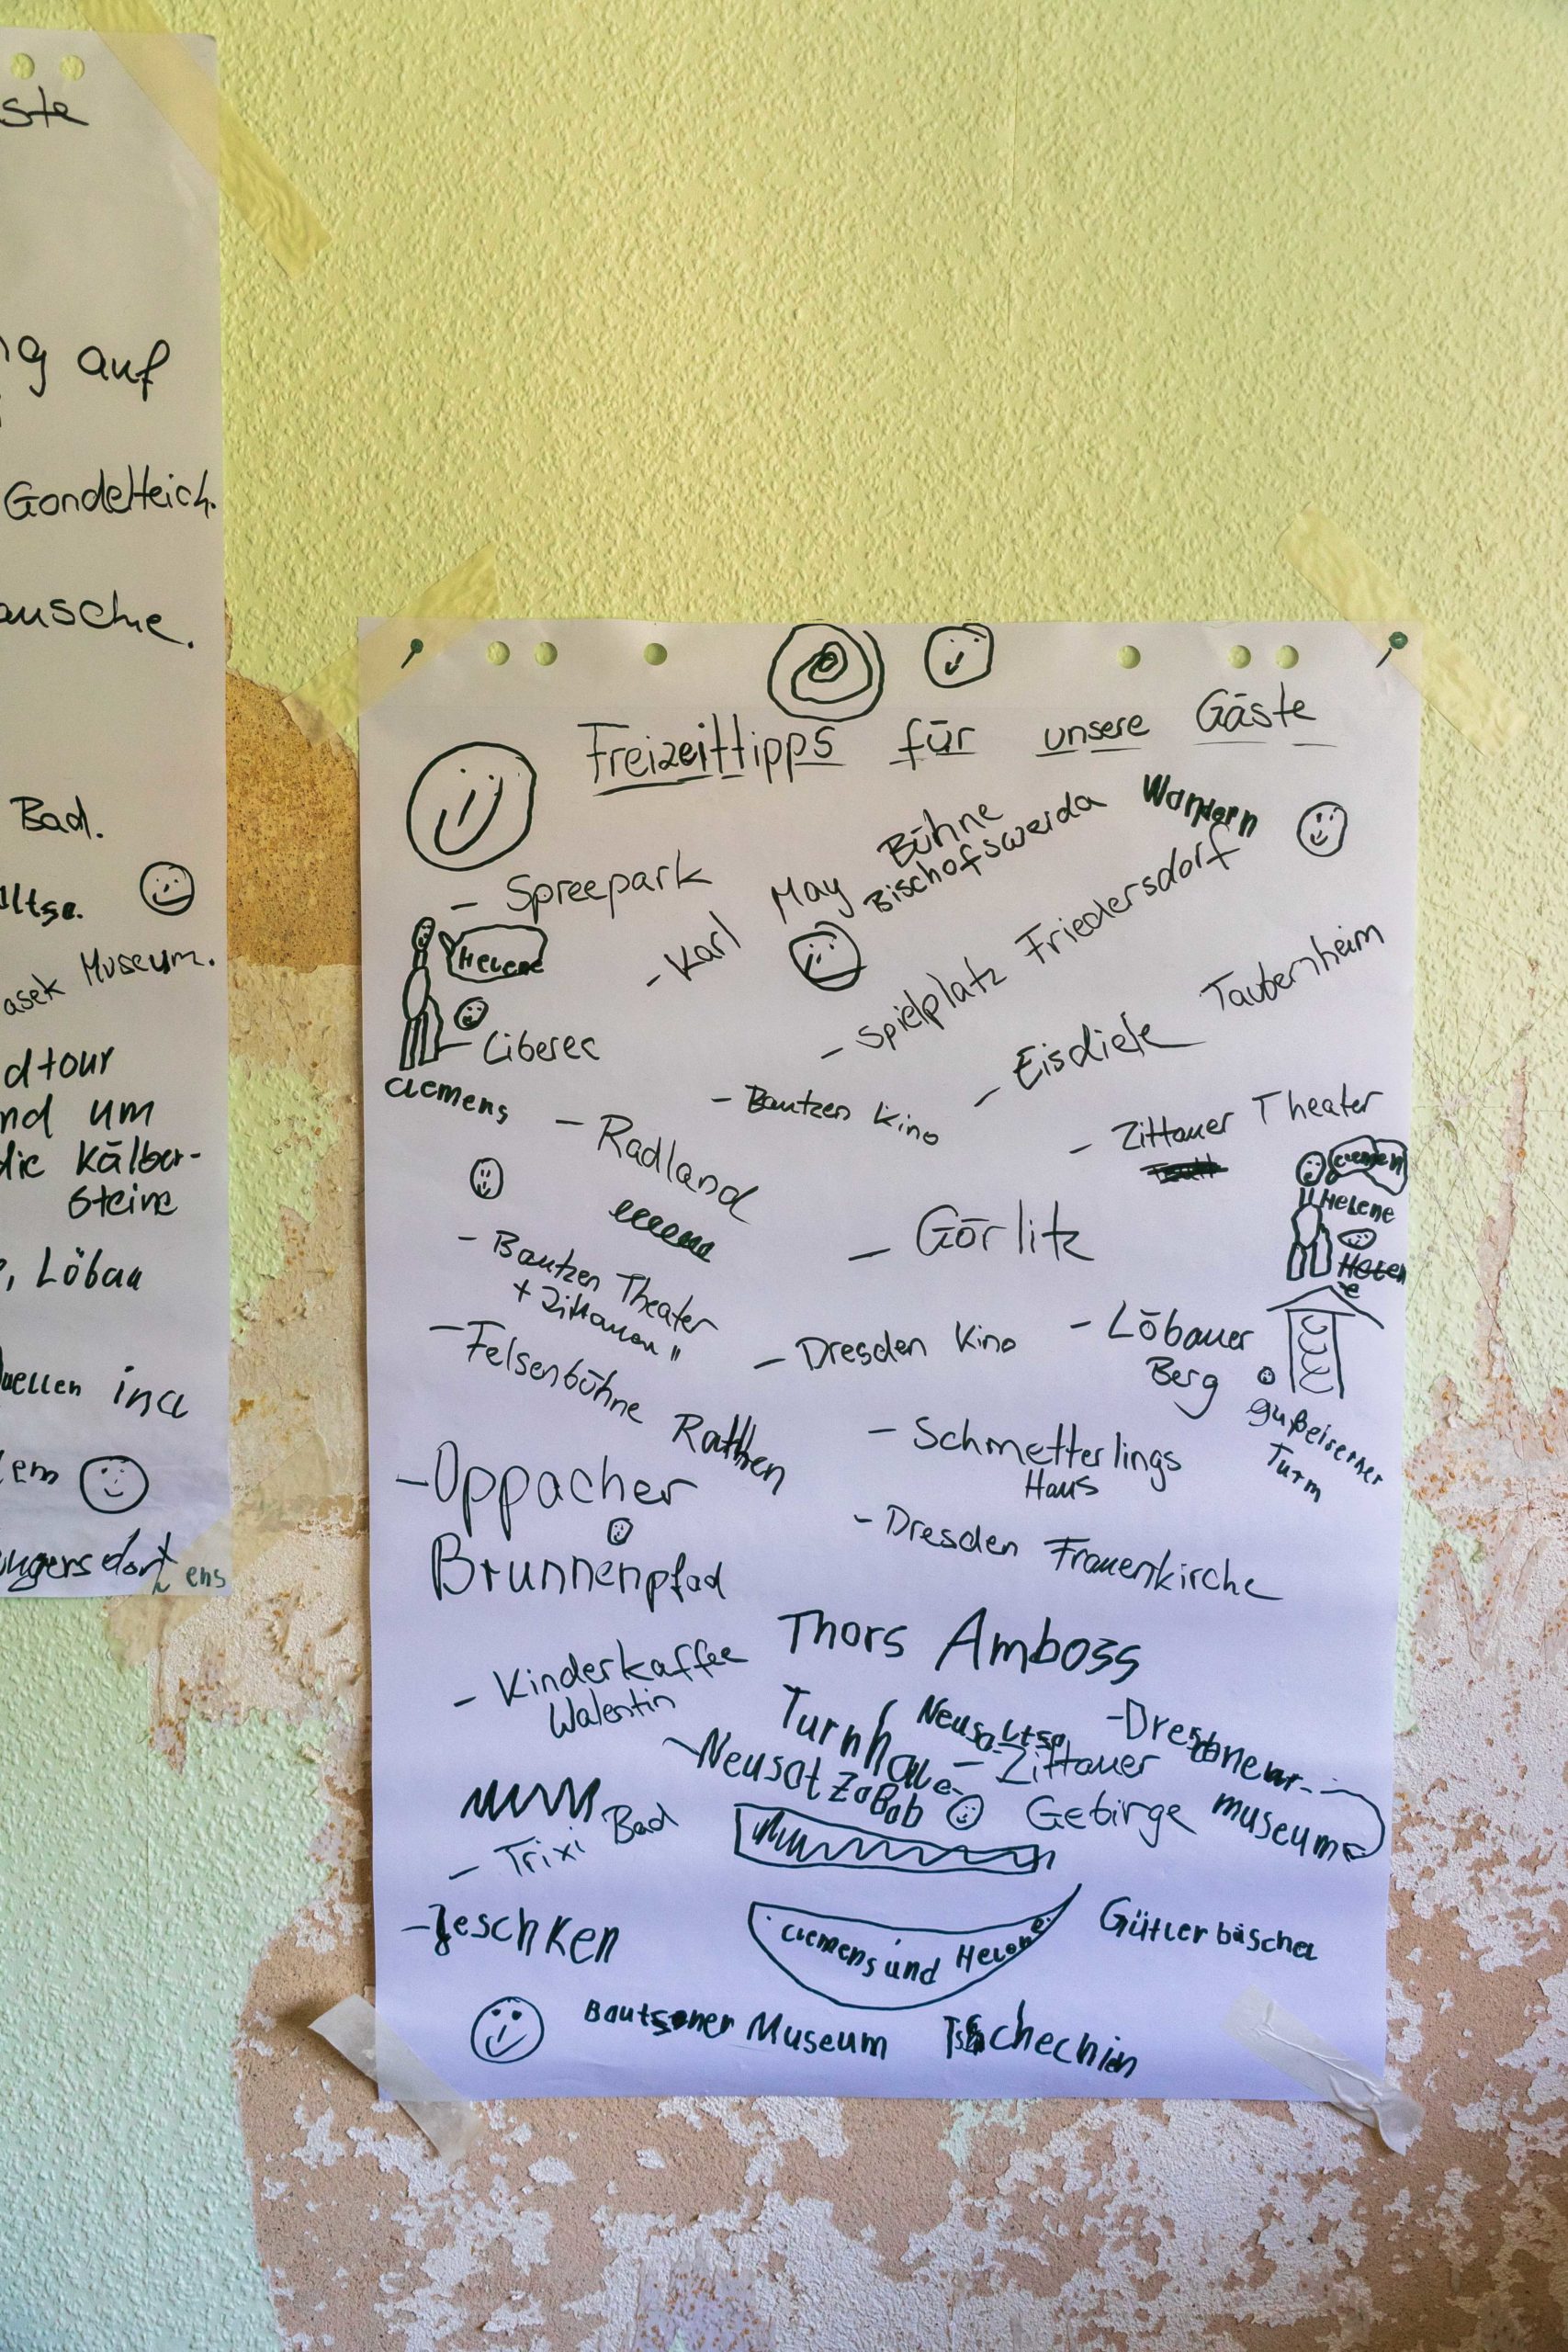 ste
auf
Gondelteich.
ausche.
Bad.
ltse.
asek Museum.
dtour
nd um
die Kälber-
steine
, Löbau
uellen incl
em
ngersdorf
ens
Freizeittipps für unsere Gäste
- Spreepark
- Karl May Bühne
Bischofswerda
Wandern
Helene
- Liberec
Clemens
- Spielplatz Friedersdorf
- Eisdiele Taubenheim
- Bautzen Kino
- Radland
- Zittauer Theater
Clemen
HELENE
- Görlitz
- Bautzen Theater
+ Zittauer "
- Felsenbühne Rathen
- Dresden Kino
- Löbauer
Berg
gußeiserner
Turm
- Oppacher
Brunnenpfad
- Schmetterlings
Haus
- Dresden Frauenkirche
Thors Amboss
- Kinderkaffee
Walentin
Turnhalle
Neusaltsa
- Dresdneur
museum
- Neusalt
- Zittauer
Gebirge
- Trixi Bad
- Jeschken
Clemens und Helene
Bautsener Museum
Tschechin